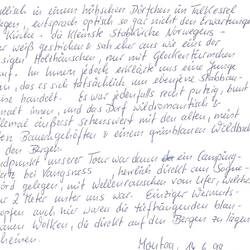 endlich in einem hübschen Dörfchen im Talkessel
gen, entsprach optisch so gar nicht den Erwartungen
Kirche - die kleinste Stabkirche Norwegens -
er weiß gestrichen & sah eher aus wie eins der
sigen Holzhäuschen, nur mit Glockentürmchen
auf. Im Innern jedoch erklärte uns eine junge
, dass es sich tatsächlich um ebenjene Stabbau-
se handelt. Es war jedenfalls recht putzig, bunt
malt innen, und das Dorf wildromantisch &
allemal äußerst sehenswert mit den alten, meist
en Bauerngehöften & einem grünblauen Waldband
den Bergen.
dpunkt unserer Tour war dann ein Camping-
bei Vangsnes, herrlich direkt am Sogne-
ord gelegen, mit Wellenrauschen vom Ufer, welches
2 Meter unter uns war. Einziger Wermuts-
opfen auch hier waren die tiefhängenden blau-
auen Wolken, die direkt auf den Bergen zu liegen
scheinen.
Montag, 14.6.99